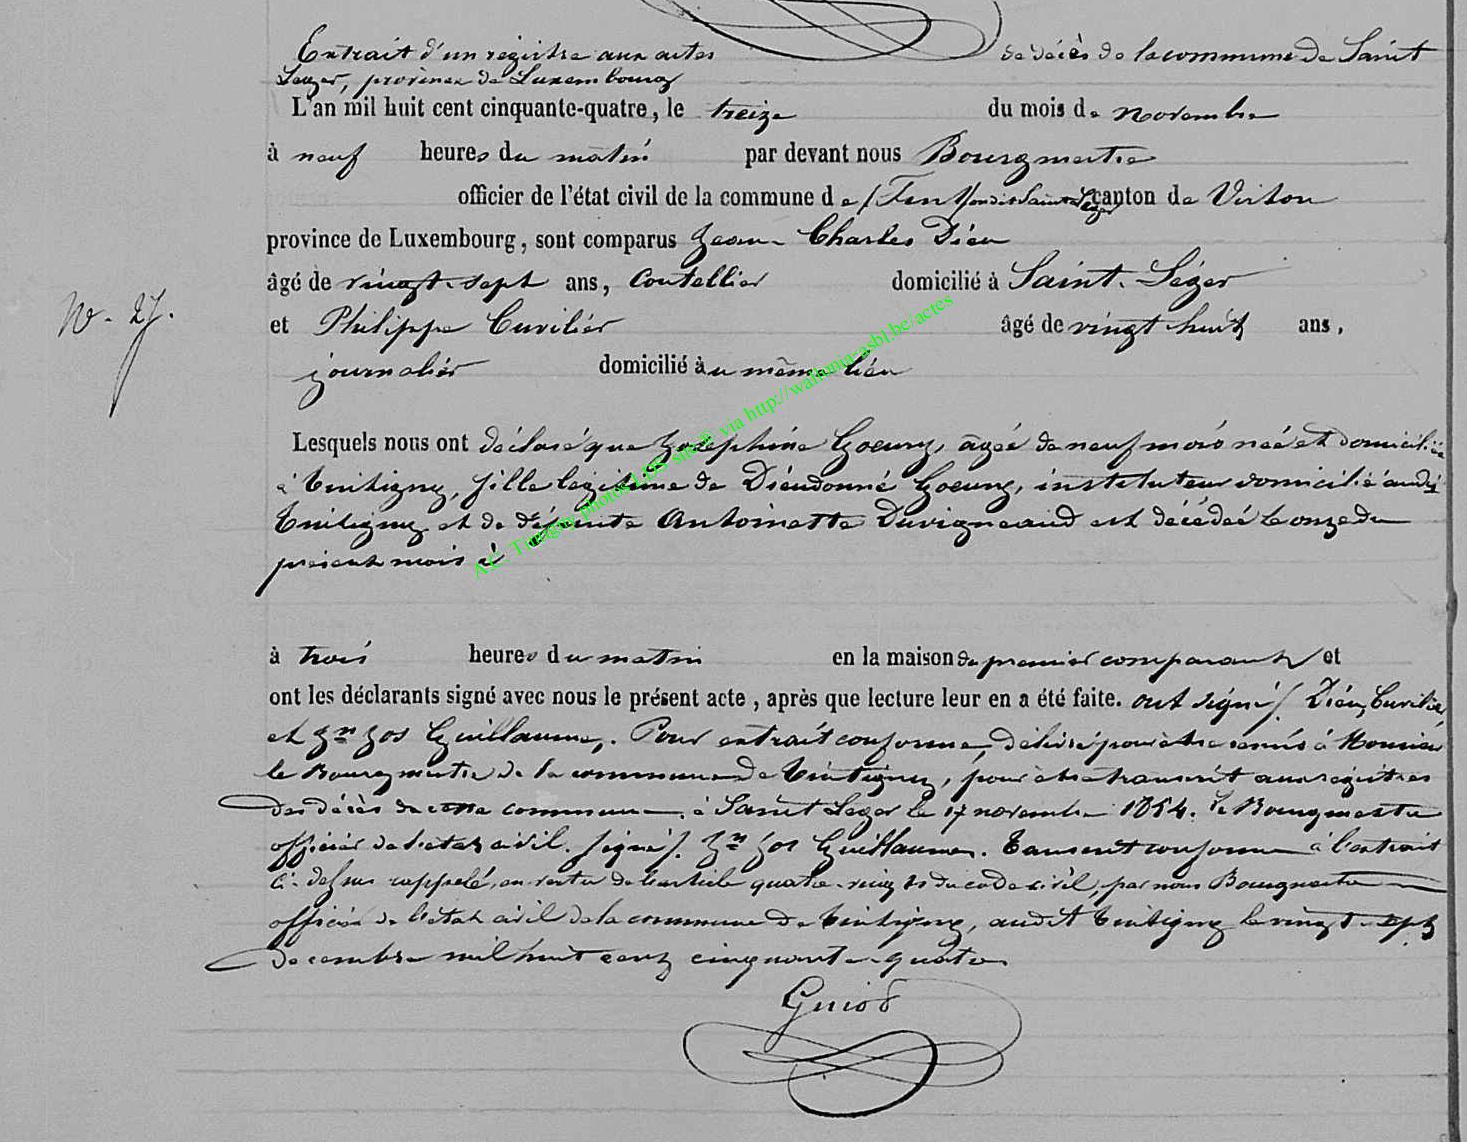 Extrait d'un registre aux actes de décès de la commune de Saint
Leger, province de Luxembourg
L'an mil huit cent cinquante-quatre, le treize du mois de novembre
à neuf heures du matin par devant nous Bourgmestre
officier de l'état civil de la commune de canton de Virton
province de Luxembourg, sont comparus Jean Charles Dieu
âgé de vingt-sept ans, Coutellier domicilié à Saint-Léger
N. 27.
et Philippe Cuvilier âgé de vingt huit ans,
journalier domicilié au même lieu
Lesquels nous ont déclaré que Josephine Goeury, âgée de neuf mois née et domiciliée
à Tintigny, fille légitime de Dieudonné Goeury, instituteur domicilié audit
Tintigny et de défunte Antoinette Duvigneaud est décédée le onze du
présent mois à
à trois heures du matin en la maison du premier comparant et
ont les déclarants signé avec nous le présent acte, après que lecture leur en a été faite. ont signé/. Dieu, Cuvilier,
et Jn Jos Guillaume,. Pour extrait conforme, délivré pour être remis à Monsieur
le Bourgmestre de la commune de Tintigny, pour être transcrit aux registres
des décès de cette commune. à Saint Leger le 17 novembre 1854. Le Bourgmestre
officier de l'état civil. signé/. Jn Jos Guillaume. Transcrit conforme à l'extrait
ci-dessus rappelé, en vertu de l'article quatre-vingts du code civil, par nous Bourgmestre
officier de l'état civil de la commune de Tintigny, audit Tintigny le vingt-sept
decembre mil huit cent cinquante-quatre.
Guiot
A.C. Tintigny photos LDS sur © via http://wallonia-asbl.be/actes